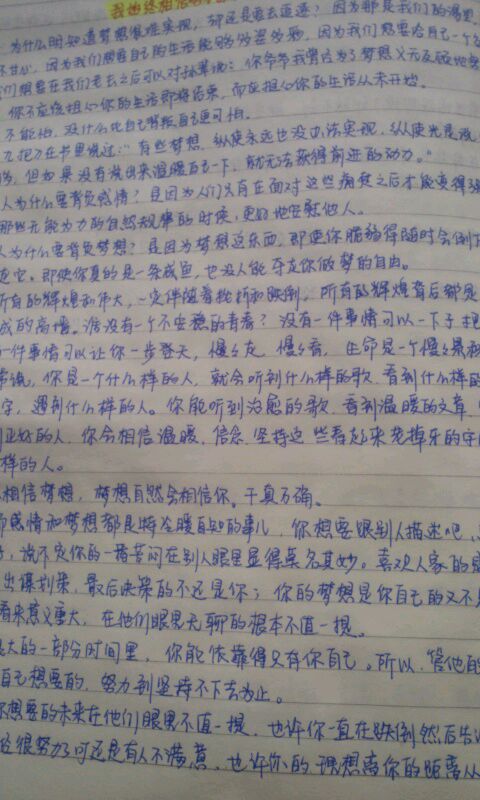 我也终相信
为什么明知道梦想很难实现，却还是要去追逐？因为那是我们的渴望，
不甘心，因为我们想要自己的生活能够多姿多彩，因为我们想要给自己一个
们想要在我们老去之后可以对孙辈说：你爷爷我曾经为了梦想义无反顾地
你不应该担心你的生活即将结束，而应担心你的生活从未开始。
不能怕，没什么比自己背叛自己更可怕。
九把刀在书里说过："有些梦想，纵使永远也没办法实现，纵使光是说
，但如果没有说出来温暖自己一下，就无法获得前进的动力。"
人为什么要背负感情？是因为人们只有在面对这些痛楚之后才能变得强
那些无能为力的自然规律的时候，更好地安慰他人。
人为什么要背负梦想？是因为梦想这东西，即使你脆弱得随时会倒下
走它。即使你真的是一条咸鱼，也没人能夺走你做梦的自由。
所有的辉煌和伟大，一定伴随着挫折和跌倒，所有的辉煌背后都是
成的高墙。谁没有一个不安稳的青春？没有一件事情可以一下子把
一件事情可以让你一步登天，慢慢走，慢慢看，生命是一个慢慢累积
常说，你是一个什么样的人，就会听到什么样的歌，看到什么样的
字，遇到什么样的人。你能听到治愈的歌，看到温暖的文章
到正好的人，你会相信温暖，信念，坚持这些看起来老掉牙的字
样的人。
相信梦想，梦想自然会相信你。千真万确。
而感情和梦想都是特冷暖自知的事儿，你想要跟别人描述吧，
，说不定你的一番苦闷在别人眼里显得莫名其妙。喜欢人家的
出谋划策，最后决策的不还是你；你的梦想是你自己的又不
看来意义重大，在他们眼里无聊的根本不值一提。
大的一部分时间里，你能依靠得只有你自己。所以，管他的
自己想要的，努力到坚持不下去为止。
你想要的未来在他们眼里不值一提，也许你一直在跌倒然后告
经很努力了可还是有人不满意，也许你的理想离你的距离从